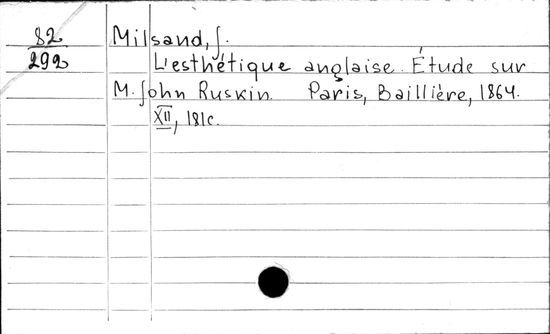 82
292
Milsand, J.
L'esthétique anglaise. Étude sur
M. John Ruskin. Paris, Baillière, 1864.
XII, 181c.